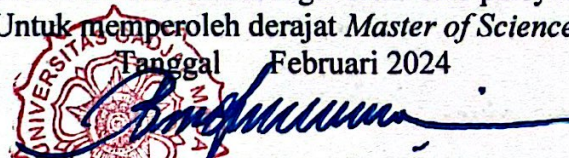 Untuk memperoleh derajat Master of Science
Tanggal Februari 2024
UNIVERSITAS GADJAH MADA